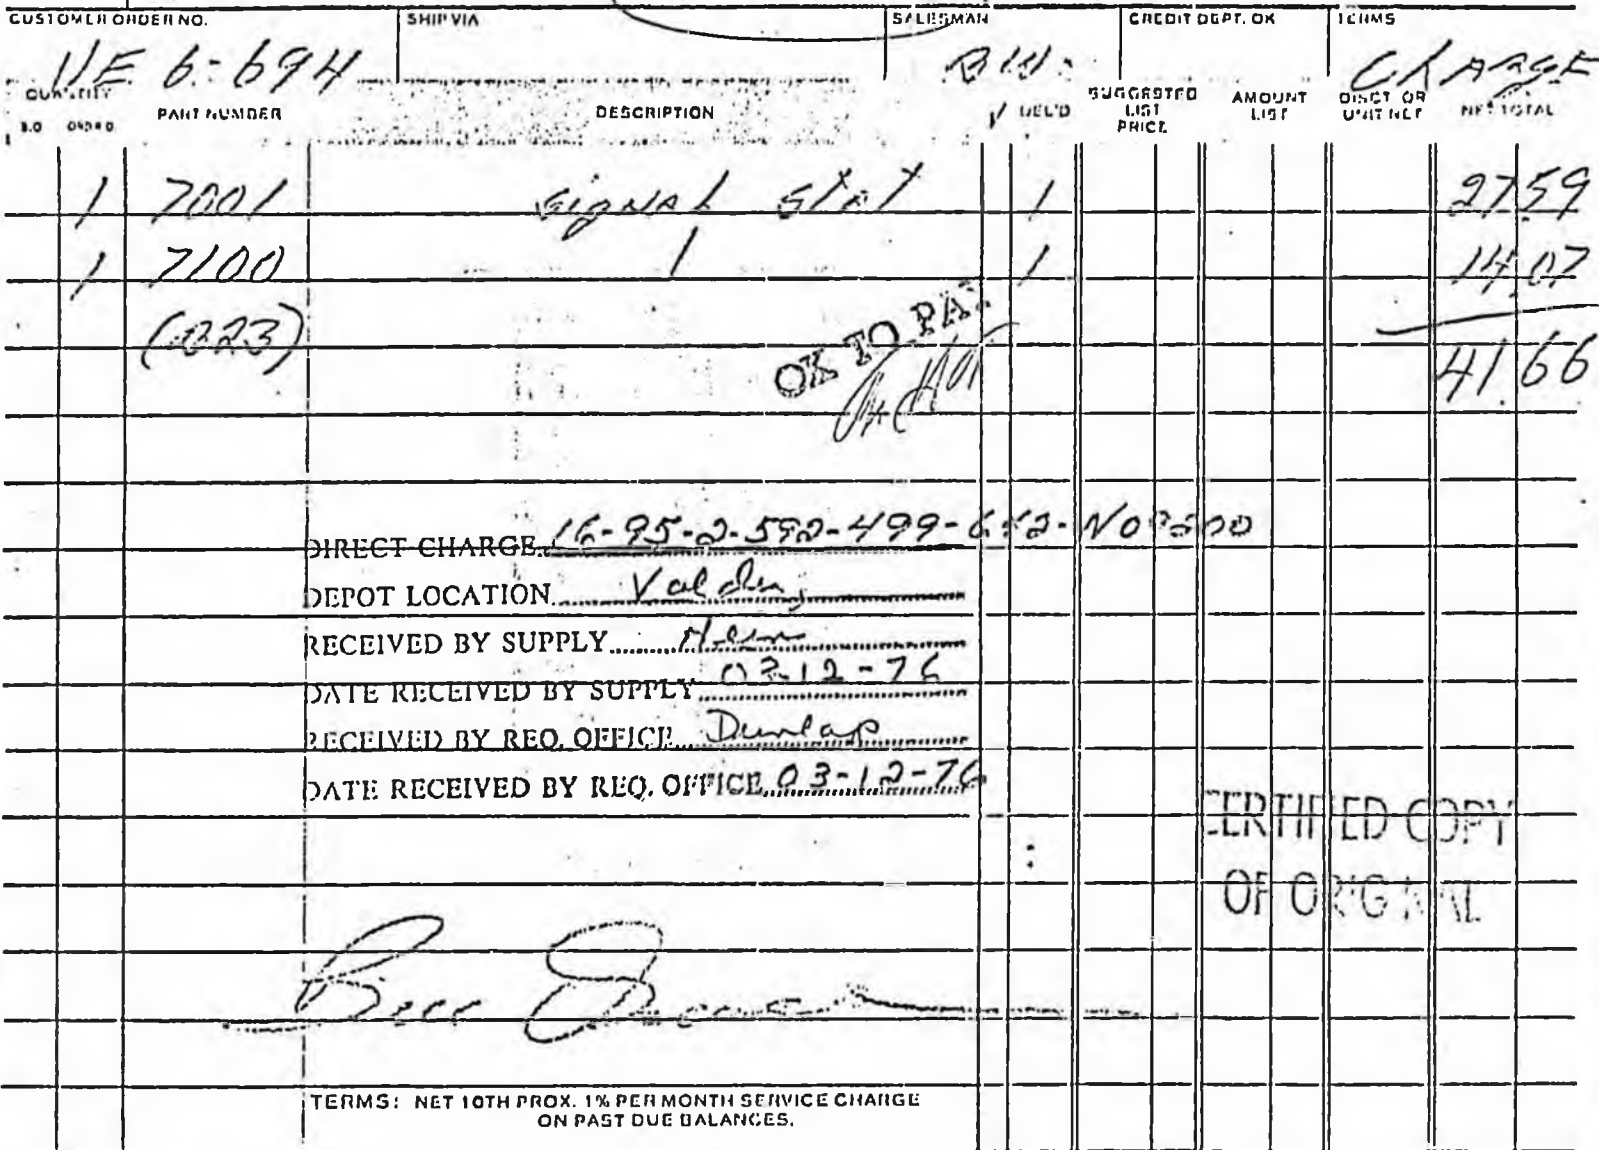 CUSTOMER ORDER NO. SHIP VIA SALESMAN CREDIT DEPT. OK TERMS
VE 6-694 BW CHARGE
QUANTITY PART NUMBER DESCRIPTION √ DEL'D SUGGESTED LIST PRICE AMOUNT LIST DISCT OR UNIT NET NET TOTAL
B.O ORD'D
1 7001 Signal Stat 1 27.59
1 7100 1 14.07
(023) 41.66
OK TO PAY
DIRECT CHARGE 16-95-2-592-499-
DEPOT LOCATION Valdez
RECEIVED BY SUPPLY
DATE RECEIVED BY SUPPLY 03-12-76
RECEIVED BY REQ. OFFICE Dunlap
DATE RECEIVED BY REQ. OFFICE 03-12-76
CERTIFIED COPY
OF ORIGINAL
TERMS: NET 10TH PROX. 1% PER MONTH SERVICE CHARGE
ON PAST DUE BALANCES.